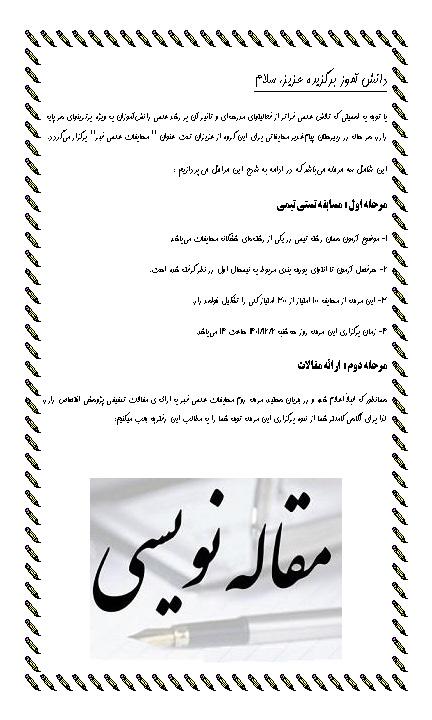 دانش آموز برگزیده عزیز، سلام
با توجه به اهمیتی که تلاش علمی فراتر از فعالیتهای مدرسه‌ای و تاثیر آن بر رشد علمی دانش‌آموزان به ویژه برترینهای هر پایه
دارد، هر ساله در دبیرستان پیام غدیر مسابقاتی برای این گروه از عزیزان تحت عنوان " مسابقات علمی غدیر" برگزار می‌گردد.
این شامل سه مرحله می‌باشد که در ادامه به شرح این مراحل می‌پردازیم :
مرحله اول: مسابقه تستی تیمی
۱- موضوع آزمون همان رشته تیمی در یکی از رشته‌های ششگانه مسابقات می‌باشد.
۲- سرفصل آزمون تا انتهای بودجه بندی مربوط به نیمسال اول در نظر گرفته شده است.
۳- این مرحله از مسابقه ۱۰۰ امتیاز از ۳۰۰ امتیاز کلی را تشکیل خواهد داد.
۴- زمان برگزاری این مرحله روز شنبه ۱۴۰۱/۱۲/۲ ساعت ۱۴ می‌باشد.
مرحله دوم: ارائه مقالات
همانطور که قبلا اعلام شد و در جریان هستید، مرحله دوم مسابقات علمی غدیر به ارائه ی مقالات تحقیقی پژوهشی اختصاص دارد.
لذا برای آگاهی کاملتر شما از نحوه برگزاری این مرحله توجه شما را به مطالب این دفترچه جلب میکنیم:
مقاله نویسی